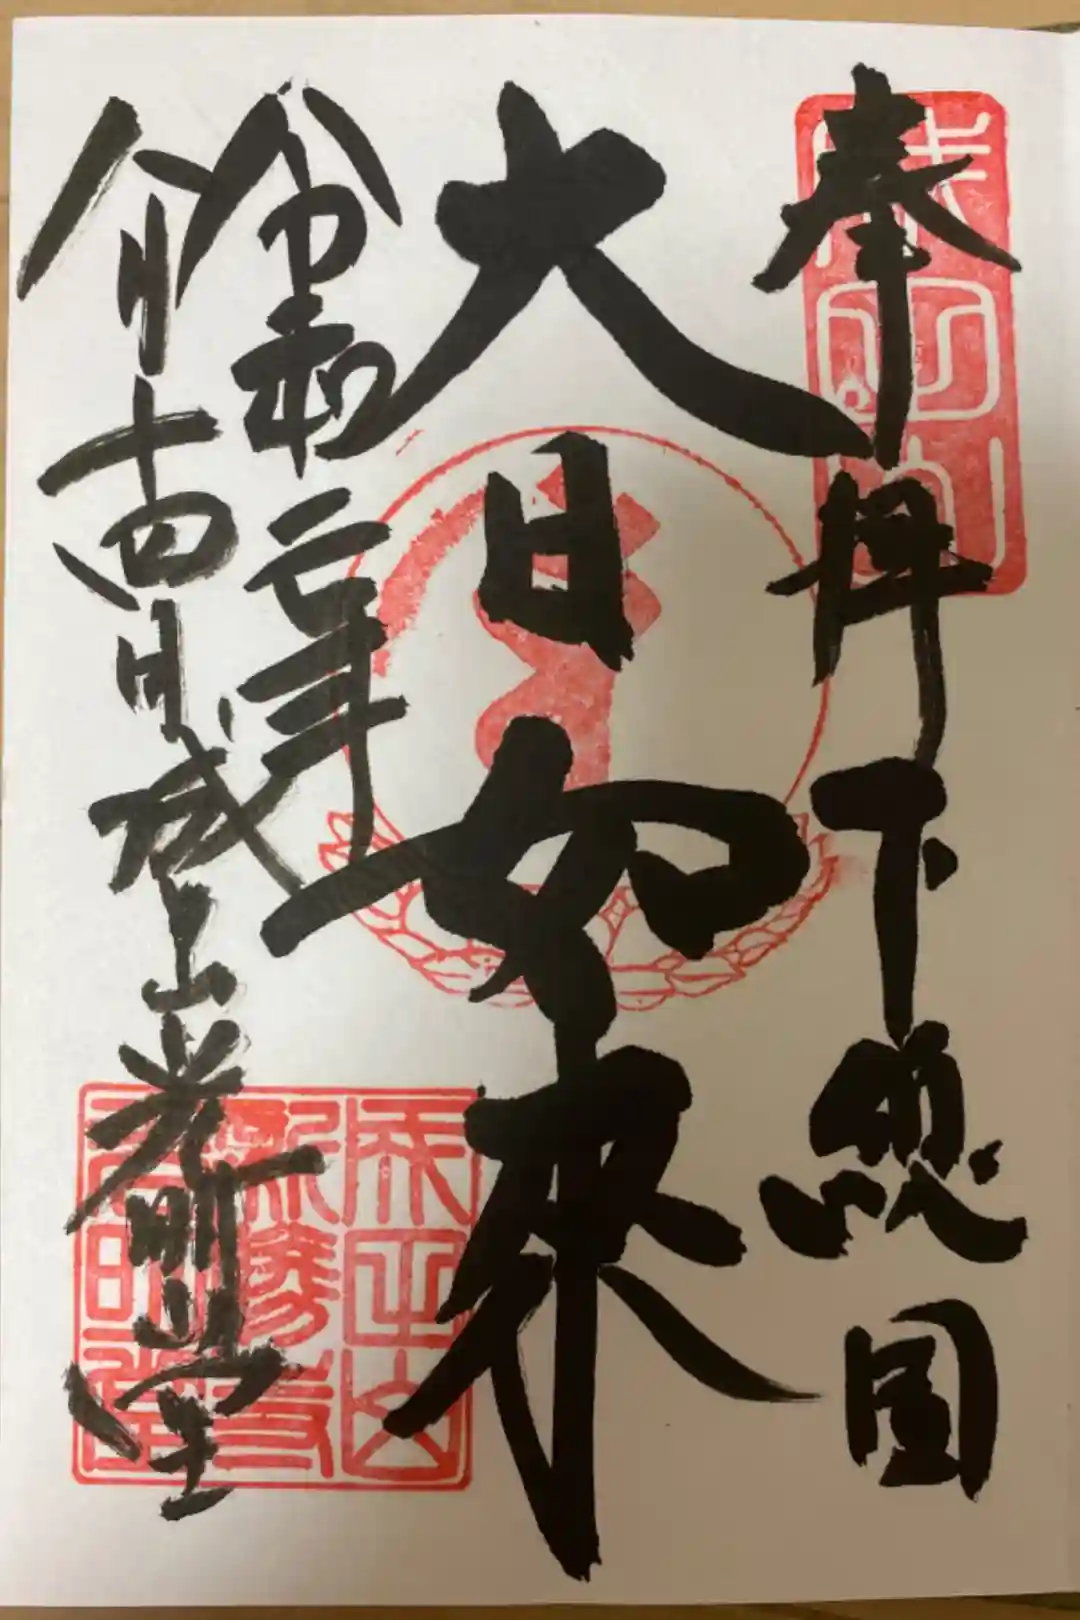 奉拝 下総国
大日如来
令和二年
八月十四日 成田山光明堂